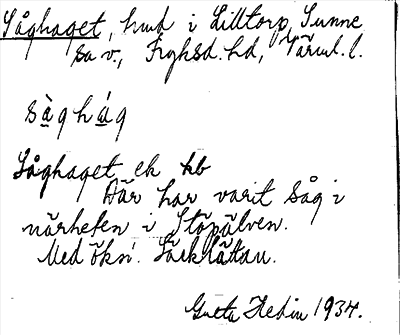 Såghaget, hmd i Lilltorp, Sunne
sn v., Fryksd. hd, Värml. l.
sàghág
Såghaget ek kb
Här har varit såg i
närheten i Stöpälven.
Med ökn.
Greta Hedin 1934.